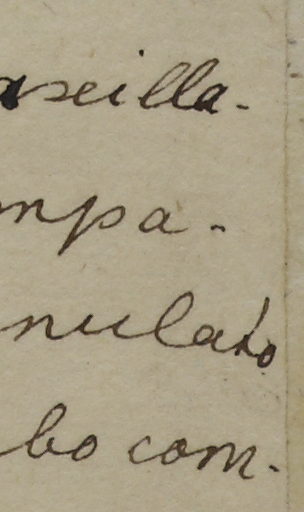 arseilla-
mpa-
nulato
bo com-